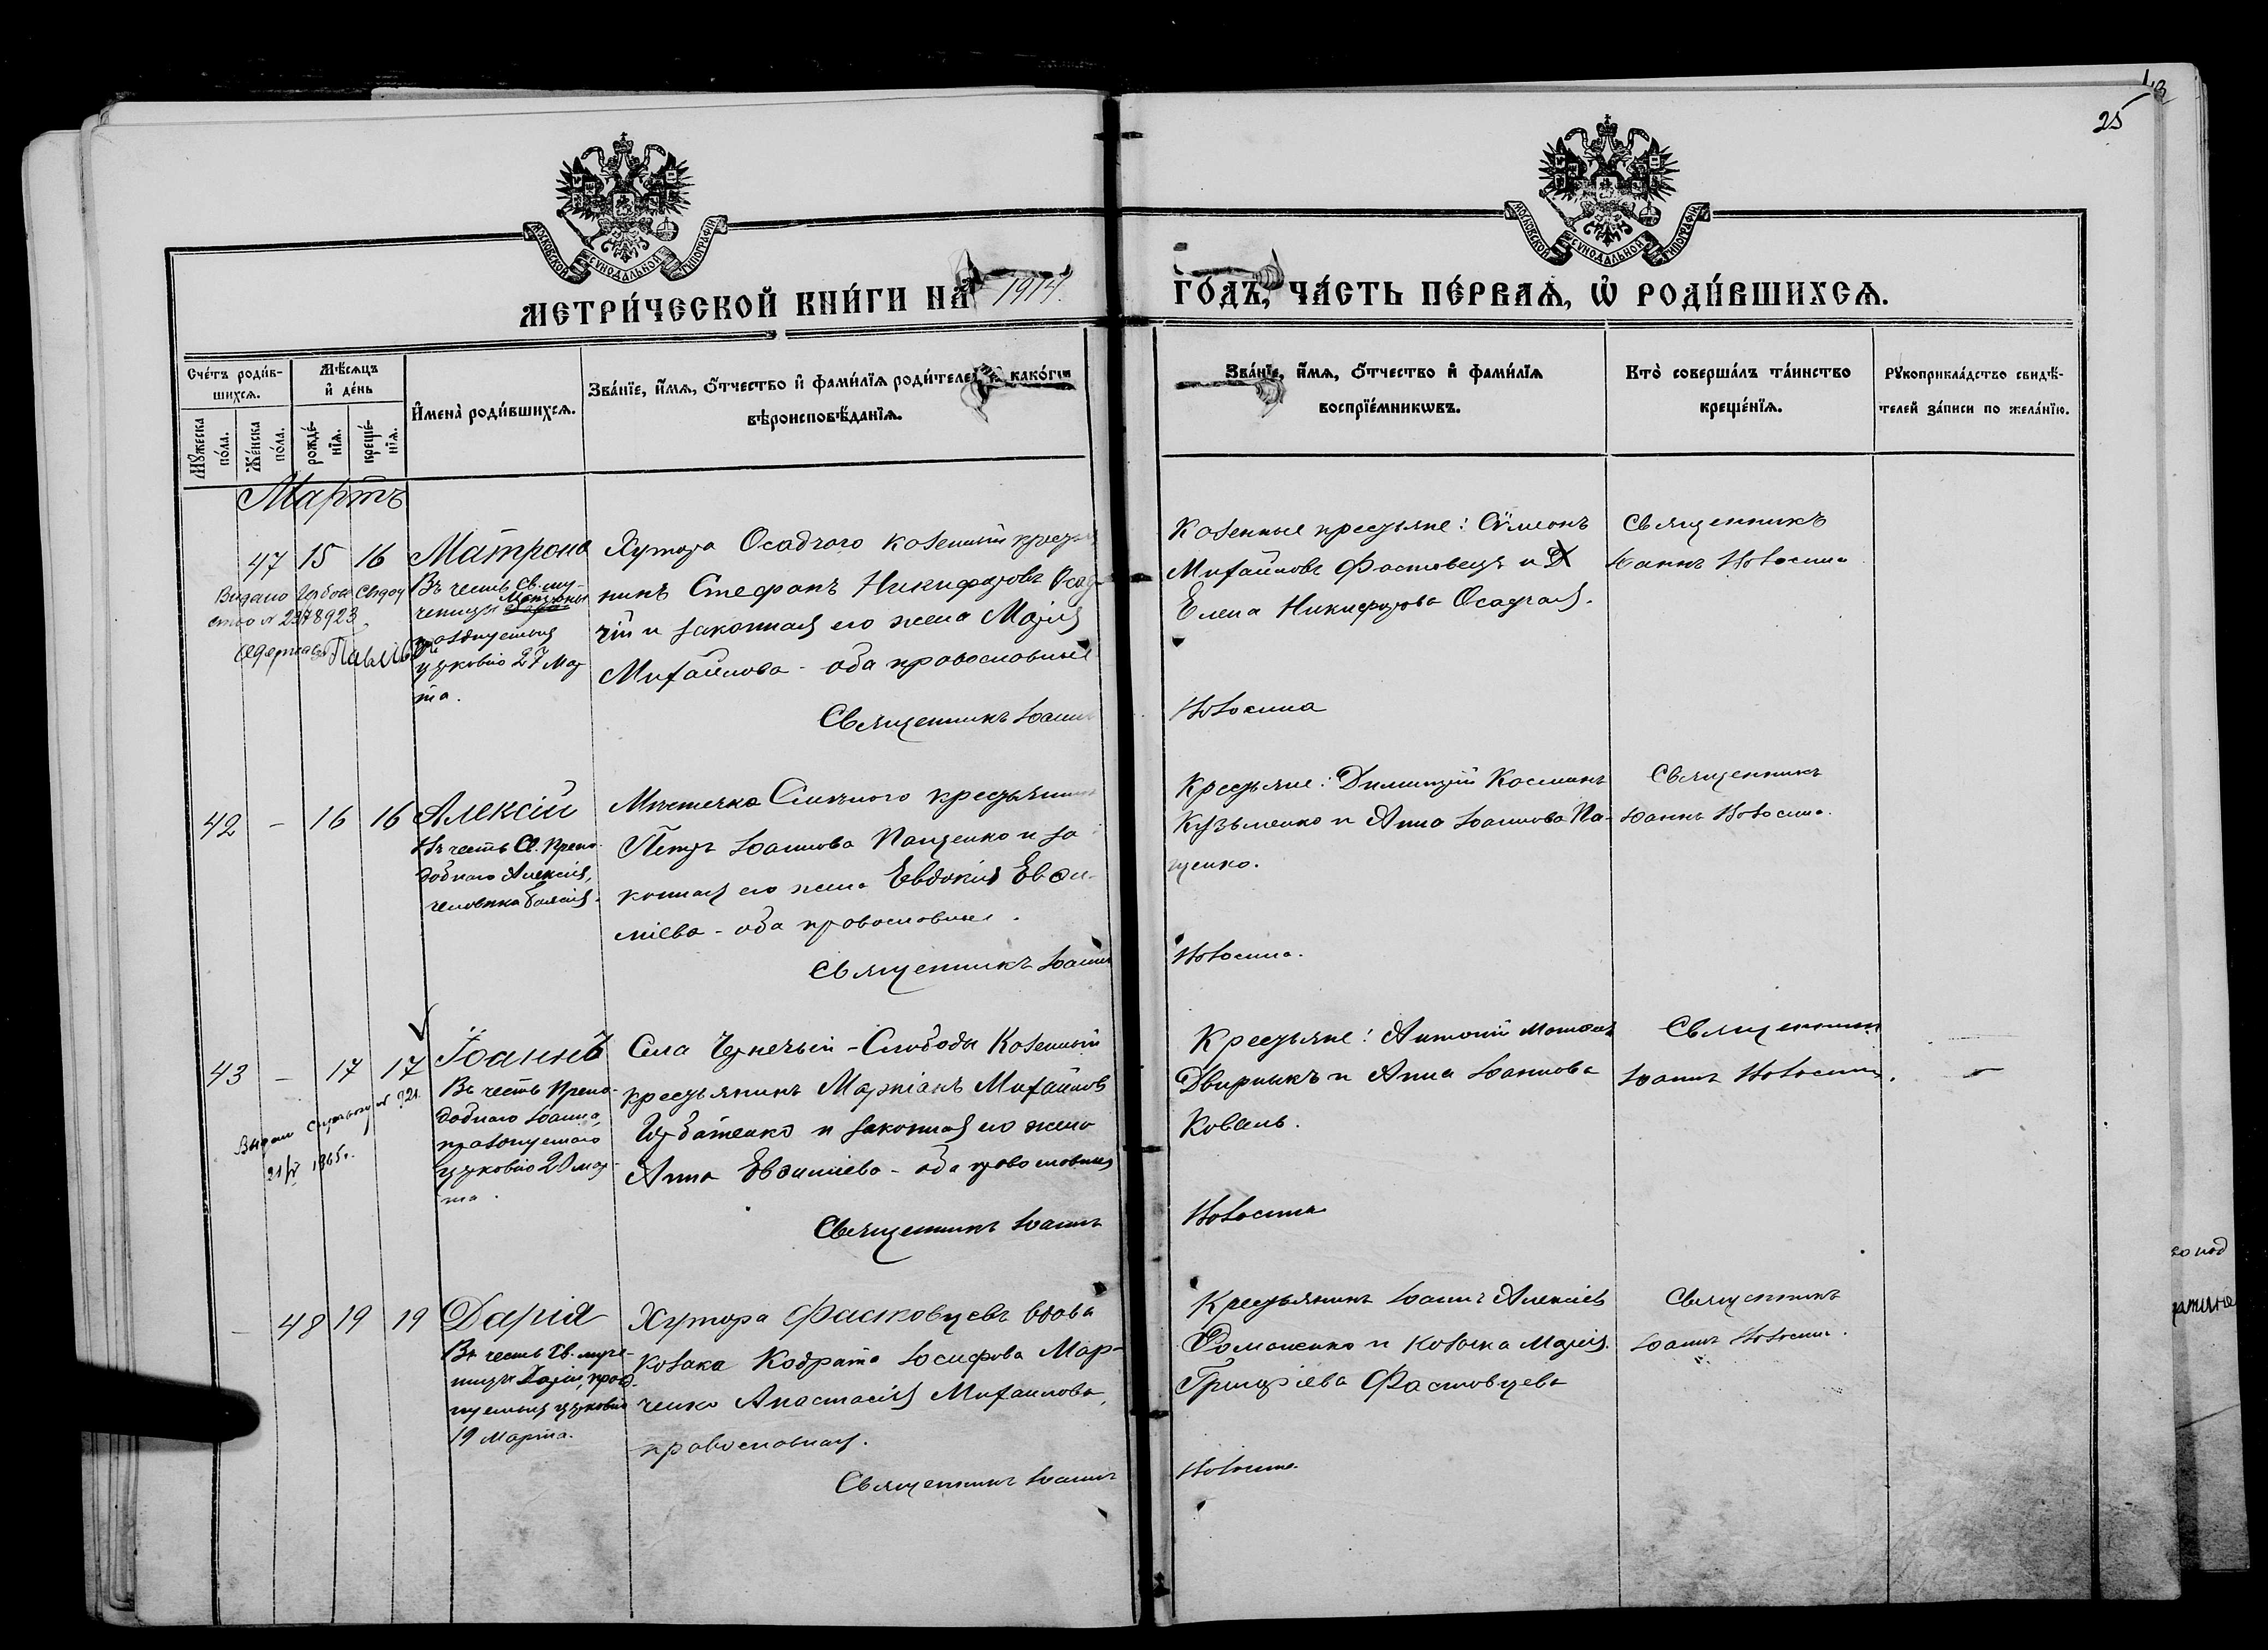 25
МОСКОВСКОЙ СѴНОДАЛЬНОЙ ТИПОГРАФІИ
МОСКОВСКОЙ СѴНОДАЛЬНОЙ ТИПОГРАФІИ
МЕТРИ́ЧЕСКОЙ КНИ́ГИ НА 1914.
ГО́ДЪ, ЧА́СТЬ ПЕ́РВАѦ, Ѡ РОДИ́ВШИХСѦ.
Сче́тъ роди́в-
шихсѧ.
Мѣ́сѧцъ
и҆ де́нь
Мꙋ́жеска
по́ла.
Же́нска
по́ла.
рожде́-
нїѧ.
креще́-
нїѧ.
И҆мена̀ роди́вшихсѧ.
Зва́нїе, и҆́мѧ, ѻ҆́тчество и҆ фами́лїѧ роди́телей, и҆ како́гѡ
вѣроисповѣ́данїѧ.
Зва́нїе, и҆́мѧ, ѻ҆́тчество и҆ фами́лїѧ
воспрїе́мникѡвъ.
Кто̀ соверша́лъ та́инство
креще́нїѧ.
Рꙋкоприкла́дство свидѣ́-
телей за́писи по жела́нїю.
Мартъ
47 15 16 Матрона
Въ честь Св. му-
ченицы Матроны
празднуемыя
церковію 27 Мар
та.
Видано
№ 2378923
Хутора Осадчого козенный крестья
нинъ Стефанъ Никифоровъ Осад-
чій и законная его жена Марія
Михайлова - оба православные
Священникъ Іоаннъ
Козенные крестьяне: Сѵмеонъ
Михайловъ Фастовецъ и
Елена Никифорова Осадчая.
Священникъ
Іоаннъ
42 - 16 16 Алексій
Въ честь Св. Препо-
добнаго Алексія,
человѣка Божія.
Мѣстечка Смѣлого крестьянинъ
Петръ Іоанновъ Пащенко и за
конная его жена Евдокія Евѳи-
міева - оба православные.
Священникъ Іоаннъ
Крестьяне: Димитрій Косминъ
Кузьменко и Анна Іоаннова Па-
щенко.
Священникъ
Іоаннъ
43 - 17 17 Іоаннъ
Въ честь Препо-
добнаго Іоанна,
празднуемаго
церковію 20 мар-
та.
Села Чернечьей-Слободы Козенный
крестьянинъ Маркіанъ Михайловъ
и законная его жена
Анна Евѳиміева - оба православные
Священникъ Іоаннъ
Крестьяне: Антоній
Двирныкъ и Анна Іоаннова
Коваль.
Священникъ
Іоаннъ
- 48 19 19 Дарія
Въ честь Св. муче-
ницы Даріи, празд-
нуемыя церковію
19 Марта.
Хутора Фастовцевъ вдова
козака Кодрата Іосифова Мар-
ченко Анастасія Михаилова,
православная.
Священникъ Іоаннъ
Крестьянинъ Іоаннъ Алексіевъ
Романенко и Козачка Марія
Григоріева Фастовцева
Священникъ
Іоаннъ